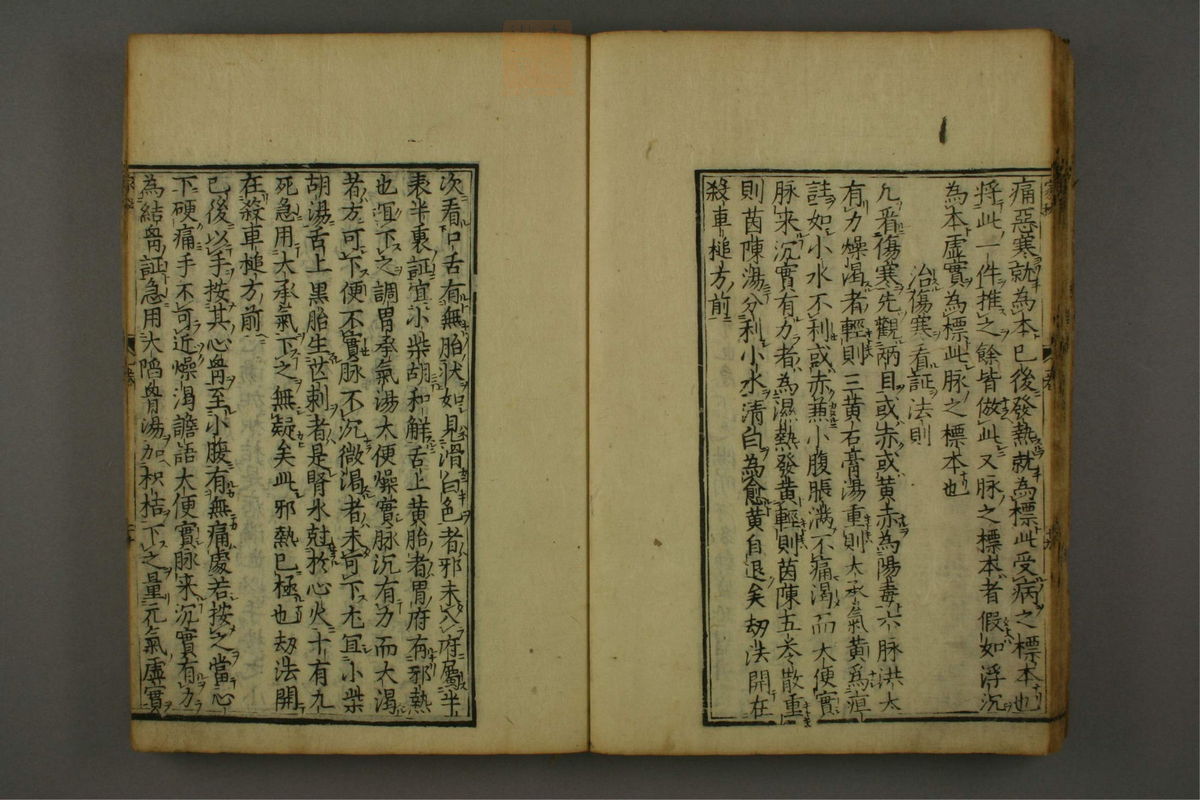 痛惡寒就為本已後發熱就為標此受病之標本也
將此一件推之餘皆倣此又脉之標本者假如浮沉
為本虛實為標此脉之標本也
治傷寒看証法則
凡看傷寒先觀兩目或赤或黃赤為陽毒六脉洪大
有力燥渴者輕則三黃石膏湯重則大承氣黃為疸
証如小水不利或赤兼小腹脹滿不痛渴而大便實
脉来沉實有力者為濕熱發黄輕則茵陳五苓散重
則茵陳湯分利小水清白為愈黄自退矣刼法開在
殺車槌方前
次看口舌有無胎状如見滑白色者邪未入府屬半
表半裏証宜小柴胡和解舌上黄胎者胃府有邪熱
也宜下之調胃承氣湯大便燥實脉沉有力而大渴
者方可下便不實脉不沉微渴者未可下尤宜小柴
胡湯舌上黒胎生芒刺者是腎水尅於心火十有九
死急用大承氣下之無疑矣此邪熱已極也刼法開
在殺車槌方前
已後以手按其心胷至小腹有無痛處若按之當心
下硬痛手不可近燥渴譫語大便實脉来沉實有力
為結胷証急用大陷胷湯加枳桔下之量元氣虛實